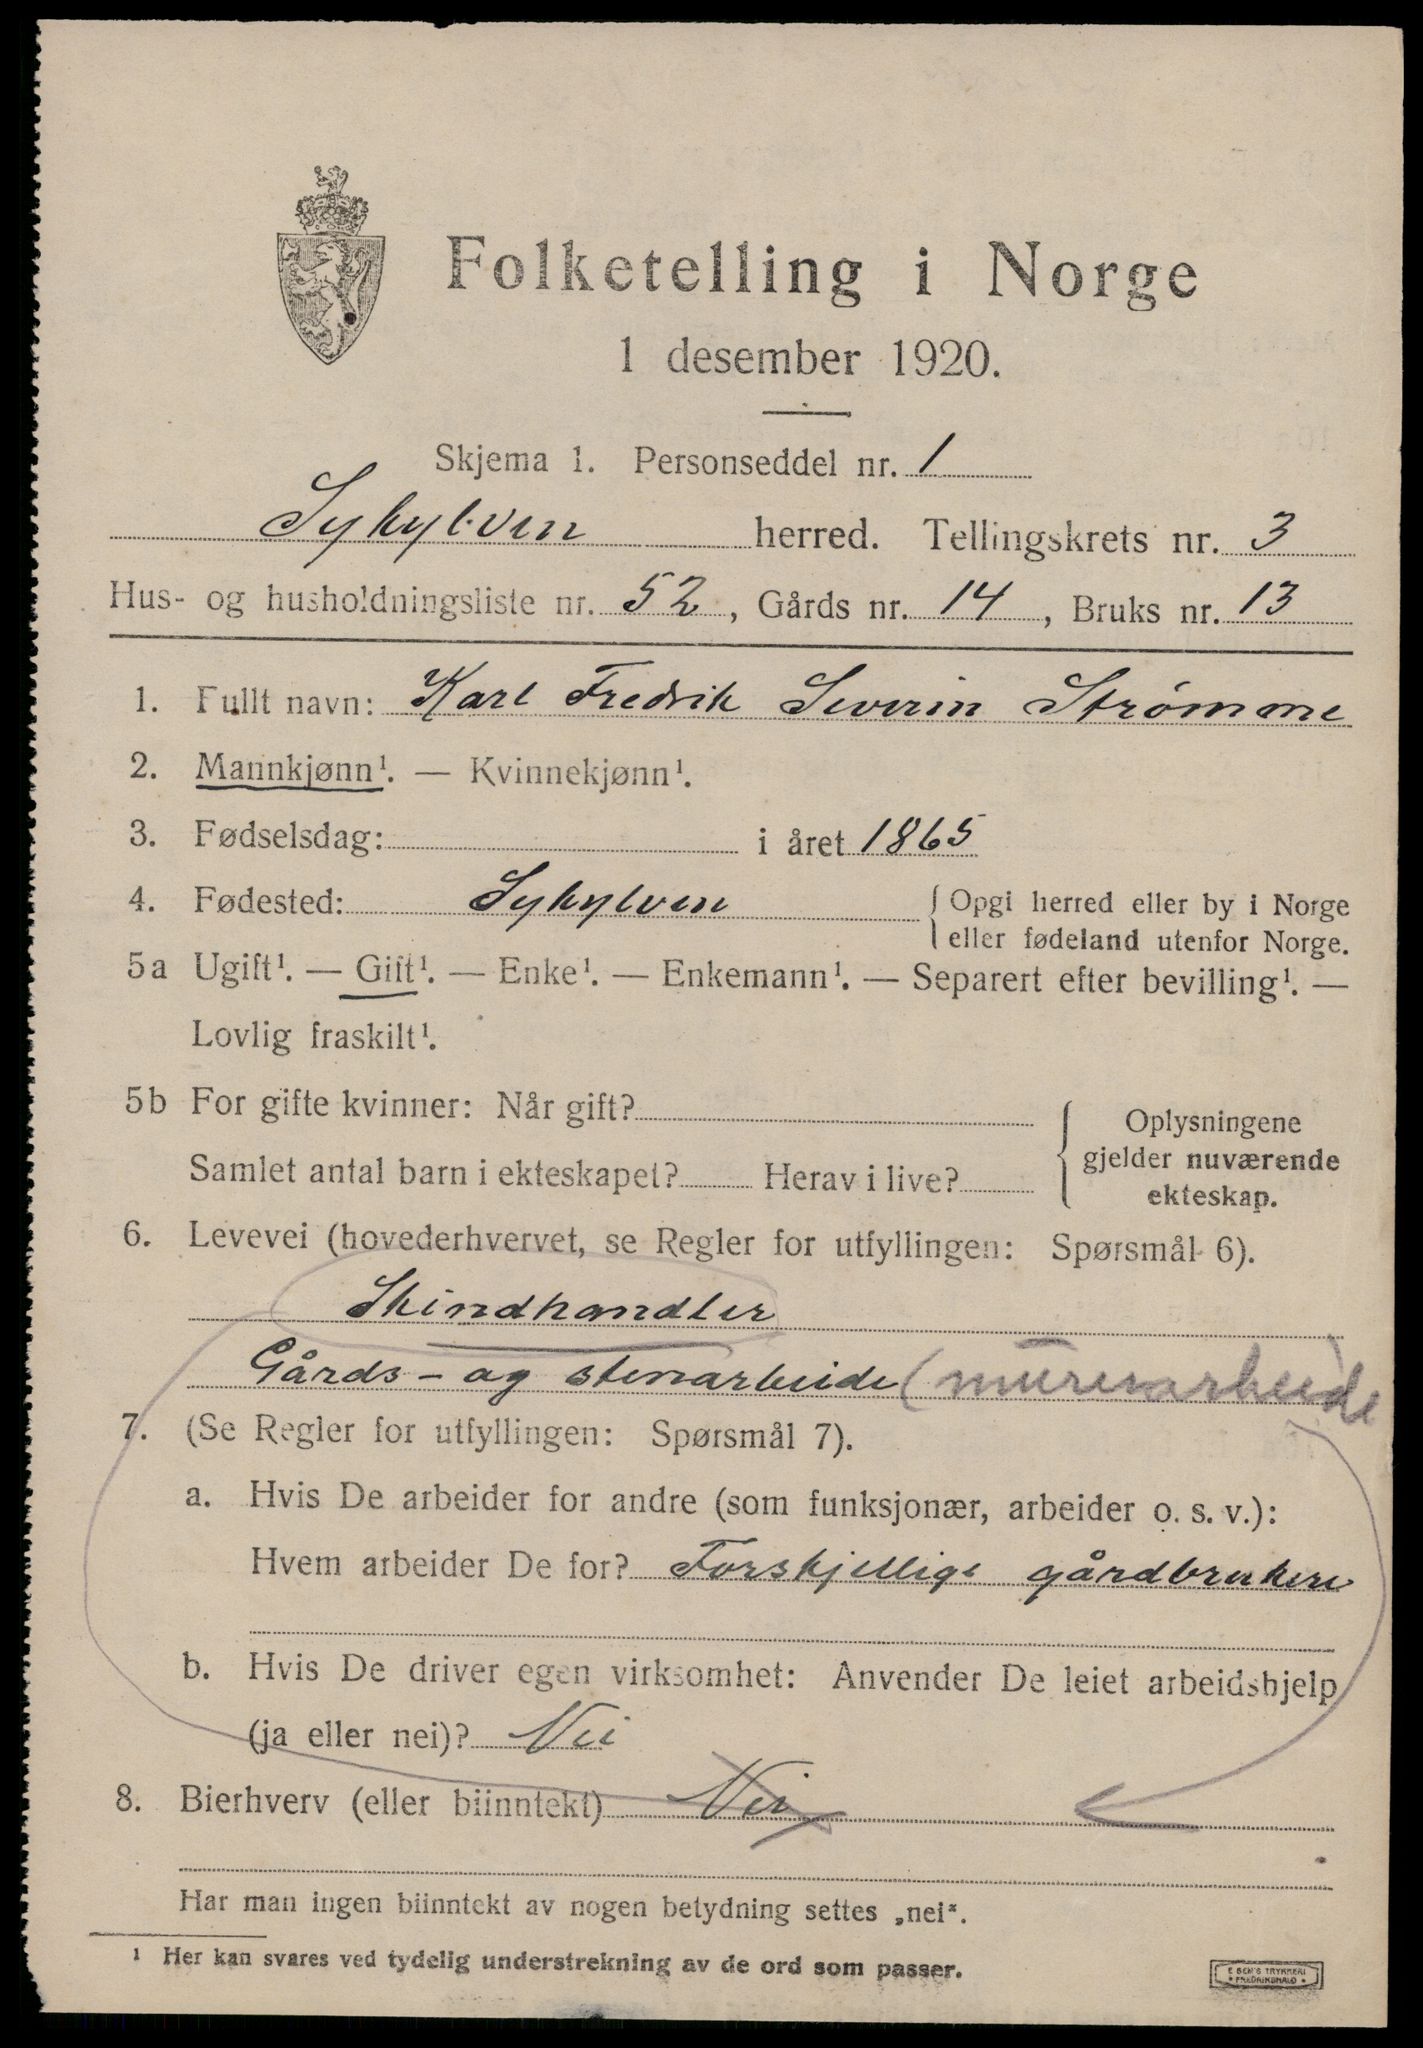 Folketelling i Norge
1 desember 1920.
Skjema 1. Personseddel nr. 1
Sykylven herred. Tellingskrets nr. 3
Hus- og husholdningsliste nr. 52, Gårds nr. 14, Bruks nr. 13
1. Fullt navn: Karl Fredrik Severin Strømme
2. Mannkjønn¹. — Kvinnekjønn¹.
3. Fødselsdag: i året 1865
4. Fødested: Sykylven { Opgi herred eller by i Norge
eller fødeland utenfor Norge.
5a Ugift¹. — Gift¹. — Enke¹. — Enkemann¹. — Separert efter bevilling¹. —
Lovlig fraskilt¹.
5b For gifte kvinner: Når gift? { Oplysningene
gjelder nuværende
Samlet antal barn i ekteskapet? Herav i live? ekteskap.
6. Levevei (hovederhvervet, se Regler for utfyllingen: Spørsmål 6).
Skindhandler
Gårds- og stenarbeide (murerarbeide)
7. (Se Regler for utfyllingen: Spørsmål 7).
a. Hvis De arbeider for andre (som funksjonær, arbeider o. s. v.):
Hvem arbeider De for? Forskjellige gårdbrukere
b. Hvis De driver egen virksomhet: Anvender De leiet arbeidshjelp
(ja eller nei)? Nei
8. Bierhverv (eller biinntekt) Nei
Har man ingen biinntekt av nogen betydning settes „nei“.
¹ Her kan svares ved tydelig understrekning av de ord som passer.
E SEM'S TRYKKERI
FREDRIKSHALD